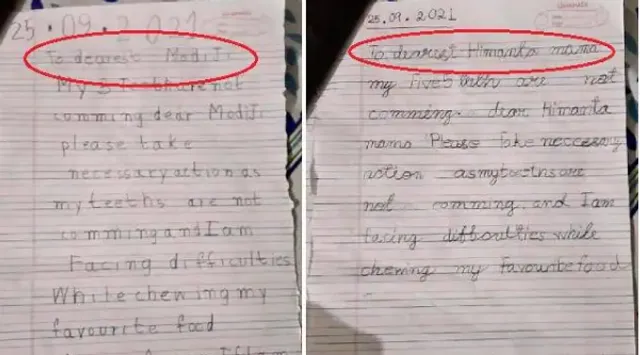 25.09.2021
To dearest ModiJi
My 5 Teeth are not
comming dear ModiJi
please take
necessary action as
my teeths are not
comming and I am
Facing difficulties
While chewing my
favourite food
25.09.2021
To dearest Himanta mama
my five 5 teeth are not
comming. dear Himanta
mama Please Take neccessary
action as my teeths are
not comming. and I am
facing difficulties while
chewing my Favourite food